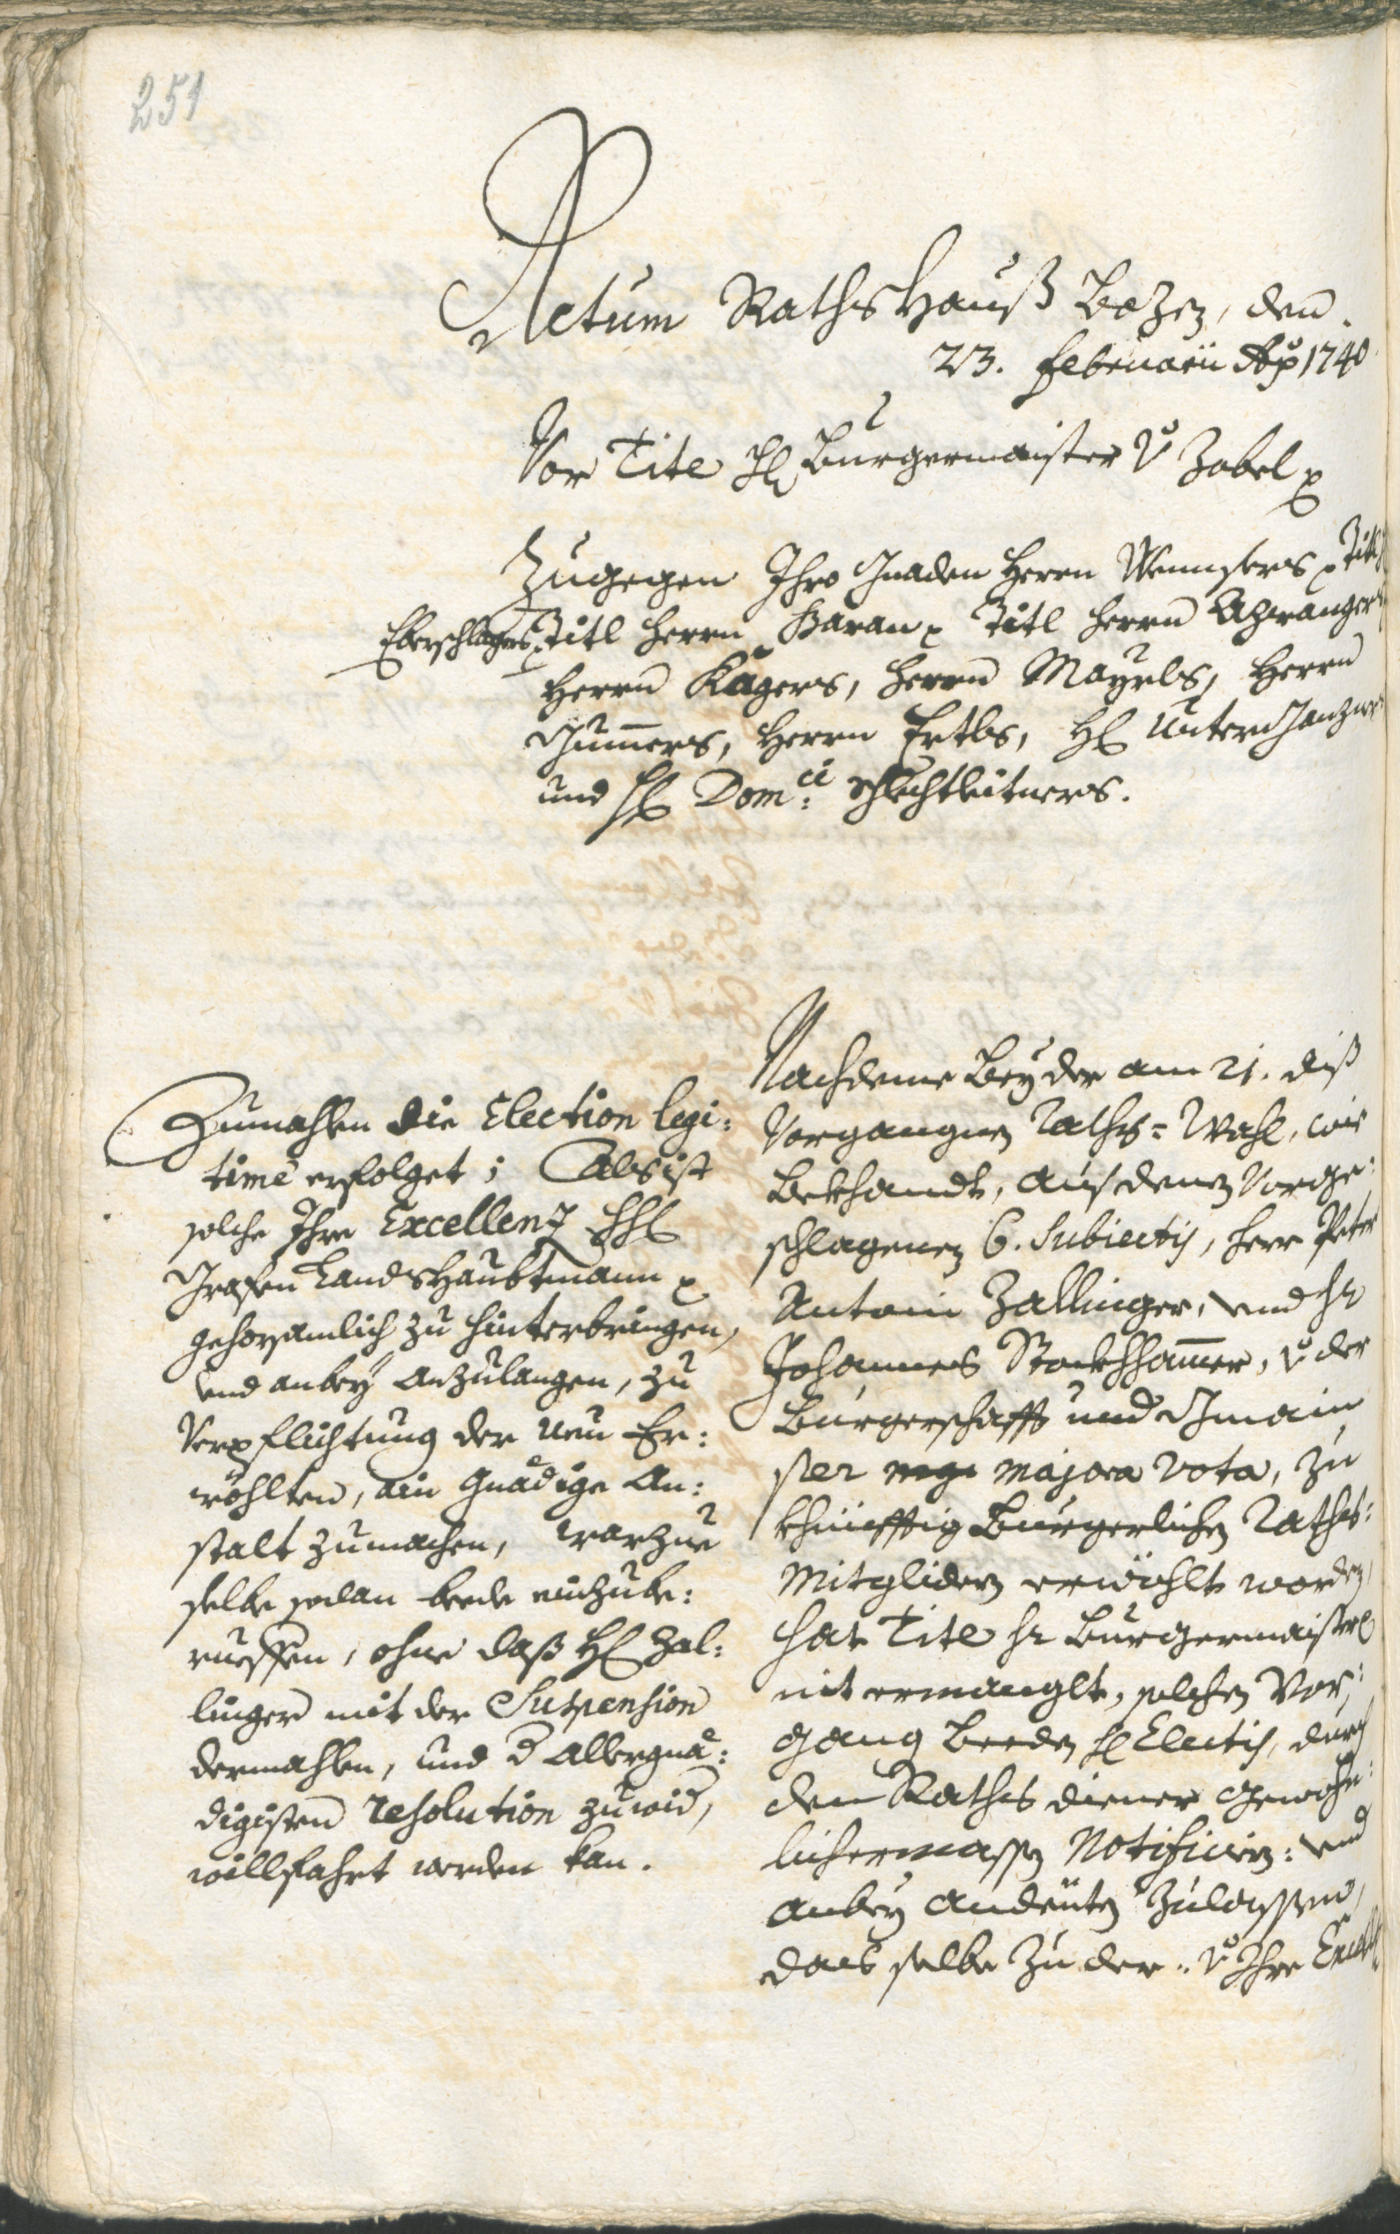 251
Actum Rathshauß Bozen, den
23. Februarii Ao 1740
Vor Titl H Burgermaister v Zobel
Zugegen Ihro Gnaden Herrn Titl
Eberschlagers, Titl Herrn Baran, Titl Herrn Azwanger
Herrn Kägers, Herrn Mayrls, Herrn
Gumers, Herrn Ertls, H Unterganzner
und H Dom:ci Schlechtleitners.
Zumahlen die Election legi:
timè erfolget; Als ist
solche Ihro Excellenz H
Grafen Landshaubtmann
gehorsamlich zu hinterbringen,
und anbey anzulangen, zu
Verpflichtung der neu Er:
wöhlten, ain gnädige An:
stalt zumachen, warzue
selbe sodan beede einzube:
rueffen, ohne daß H Zal:
linger mit der Suspension
dermahlen, und d Allergnä:
digisten resolution zuwid,
willfahrt werden kan.
Nachdeme bey der am 21. diß
Vorgangnen Raths-Wahl, wie
bekhandt, aus denen Vorge:
schlagenen 6. Subiectis, Herr Peter
Antoni Zallinger, und Hr
Johannes Stockhhamer, v der
Burgerschafft und Gmain
per majora vota, zu
khünfftig Burgerlichen Raths:
Mitglidern erwöhlt worden,
Hat Titl Hr Burgermaister
nit ermanglt, solchen Vor:
gang beeden H Electis, durch
den Rathsdiener gewohn:
lichermassen Notificiern: und
anbey andeuten zulassen,
dass selbe zu der v Ihro Excell